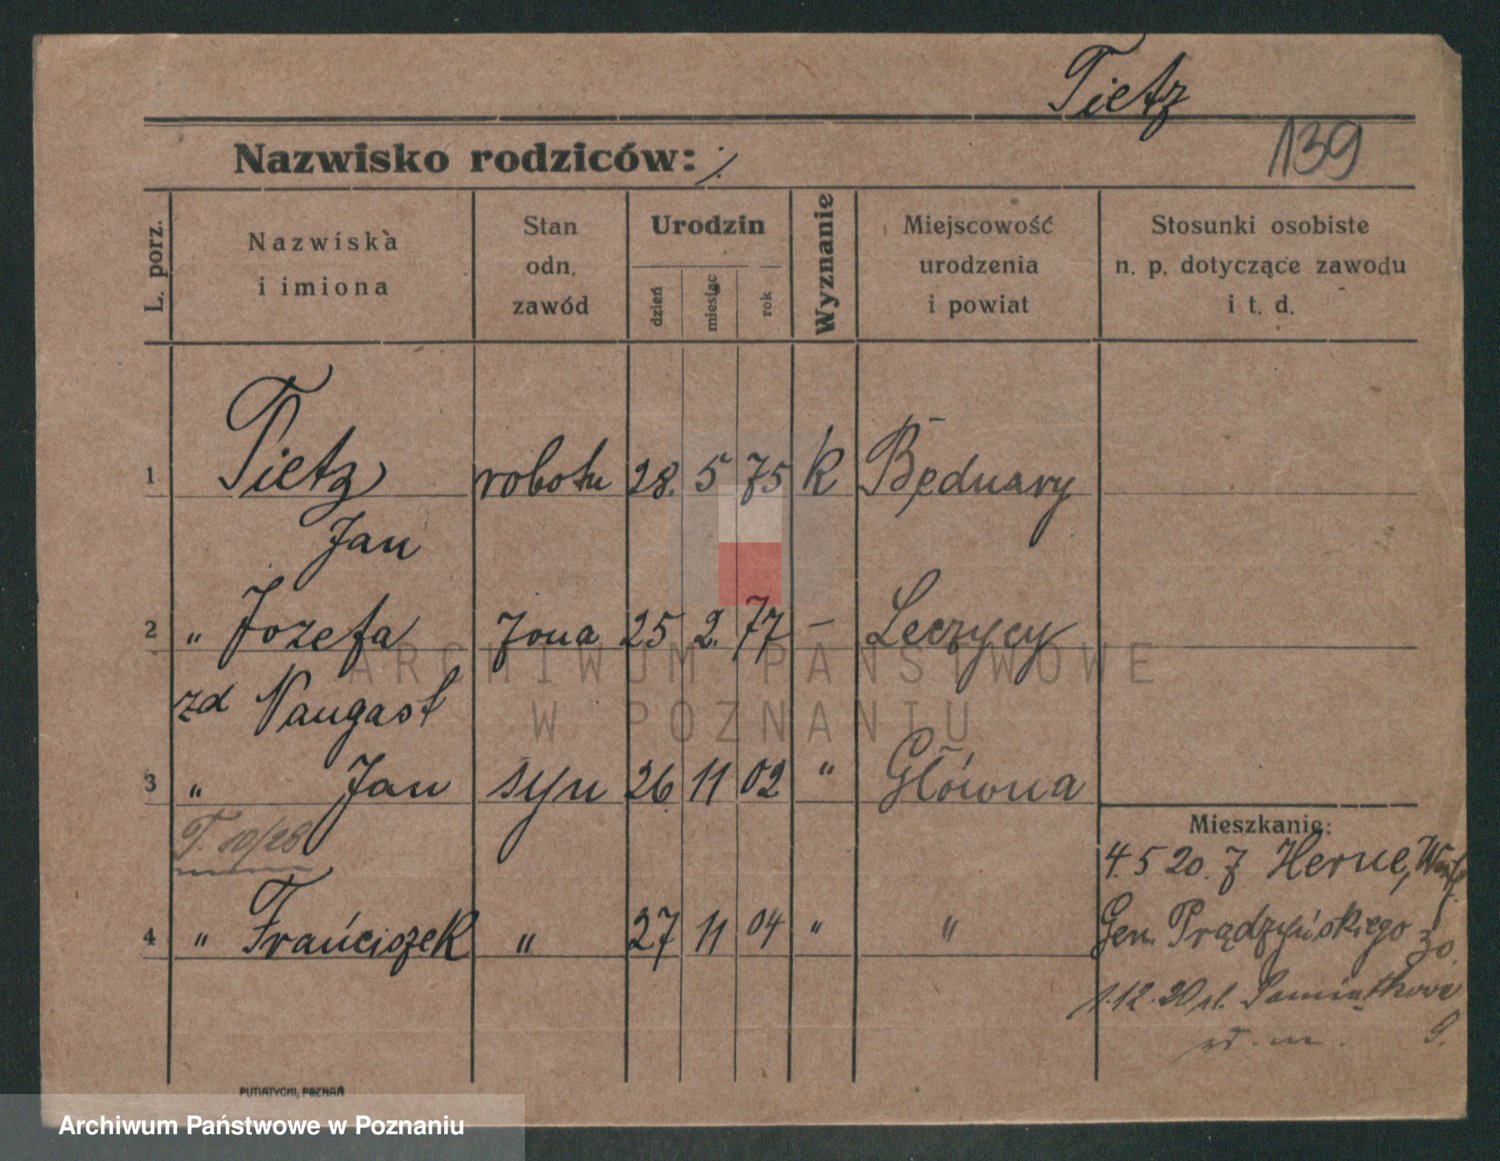 Tietz
139
Nazwisko rodziców: ./.
L. porz.
Nazwiska i imiona
Stan odn. zawód
Urodzin
dzień
miesiąc
rok
Wyznanie
Miejscowość urodzenia i powiat
Stosunki osobiste n. p. dotyczące zawodu i t. d.
1 Tietz robotn 28. 5 75 k Będnary
Jan
2 " Jozefa żona 25 2. 77 – Leczycy
zd Naugast
3 " Jan syn 26 11 02 " Główna
T. 10/28
4 " Frańciszek " 27 11 04 " "
Mieszkanie:
4. 5 20. z Herne,
Gen. Prądzyńskiego 30.
1.12.20 ul.
9.
PUTIATYCKI, POZNAŃ
ARCHIWUM PAŃSTWOWE
W POZNANIU
Archiwum Państwowe w Poznaniu